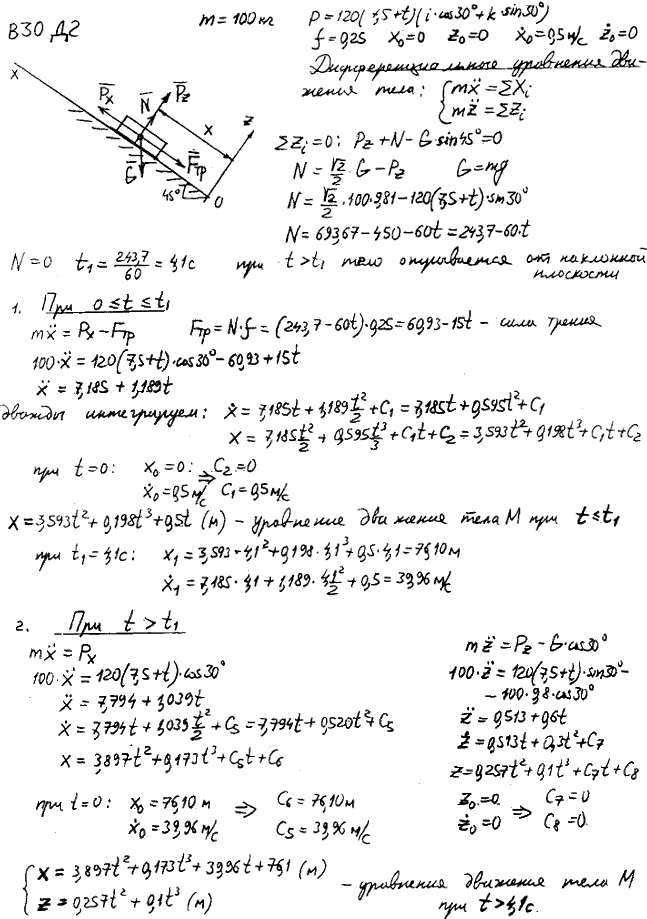 В30 Д2
m = 100 кг   P = 120(7,5+t)(i·cos30°+k·sin30°)
f = 0,25   x₀=0   z₀=0   ẋ₀=0,5 м/с   ż₀=0
Дифференциальные уравнения дви-
жения тела: { mẍ = ΣXᵢ
mz̈ = ΣZᵢ
x
P̄x
N̄
P̄z
x
z
F̄тр
Ḡ
45°
0
ΣZᵢ=0: Pz + N - G·sin45°=0
N = √2/2 · G - Pz   G = mg
N = √2/2 · 100·9,81 - 120(7,5+t)·sin30°
N = 693,67 - 450 - 60t = 243,7 - 60·t
N=0   t₁ = 243,7/60 = 4,1 с   при t>t₁ тело отрывается от наклонной
плоскости
1. При 0 ≤ t ≤ t₁
mẍ = Px - Fтр   Fтр = N·f = (243,7 - 60t)·0,25 = 60,93 - 15t - сила трения
100·ẍ = 120(7,5+t)·cos30° - 60,93 + 15t
ẍ = 7,185 + 1,189t
дважды интегрируем: ẋ = 7,185t + 1,189 t²/2 + C₁ = 7,185t + 0,595t² + C₁
x = 7,185 t²/2 + 0,595 t³/3 + C₁t + C₂ = 3,593t² + 0,198t³ + C₁t + C₂
при t=0: x₀=0: ⇒ C₂=0
ẋ₀=0,5 м/с   C₁=0,5 м/с
x = 3,593t² + 0,198t³ + 0,5t (м) - уравнение движение тела М при t ≤ t₁
при t₁=4,1с: x₁ = 3,593·4,1² + 0,198·4,1³ + 0,5·4,1 = 76,10 м
ẋ₁ = 7,185·4,1 + 1,189·4,1²/2 + 0,5 = 39,96 м/с
2. При t > t₁
mẍ = Px
100·ẍ = 120(7,5+t)·cos30°
ẍ = 7,794 + 1,039t
ẋ = 7,794t + 1,039 t²/2 + C₅ = 7,794t + 0,520t² + C₅
x = 3,897t² + 0,173t³ + C₅t + C₆
при t=0: x₀ = 76,10 м ⇒ C₆ = 76,10 м
ẋ₀ = 39,96 м/с   C₅ = 39,96 м/с
mz̈ = Pz - G·cos30°
100·z̈ = 120(7,5+t)·sin30° -
- 100·9,8·cos30°
z̈ = 0,513 + 0,6t
ż = 0,513t + 0,3t² + C₇
z = 0,257t² + 0,1t³ + C₇t + C₈
z₀=0 ⇒ C₇=0
ż₀=0   C₈=0
{ x = 3,897t² + 0,173t³ + 39,96t + 76,1 (м)
z = 0,257t² + 0,1t³ (м)
- уравнения движения тела М
при t > 4,1с.